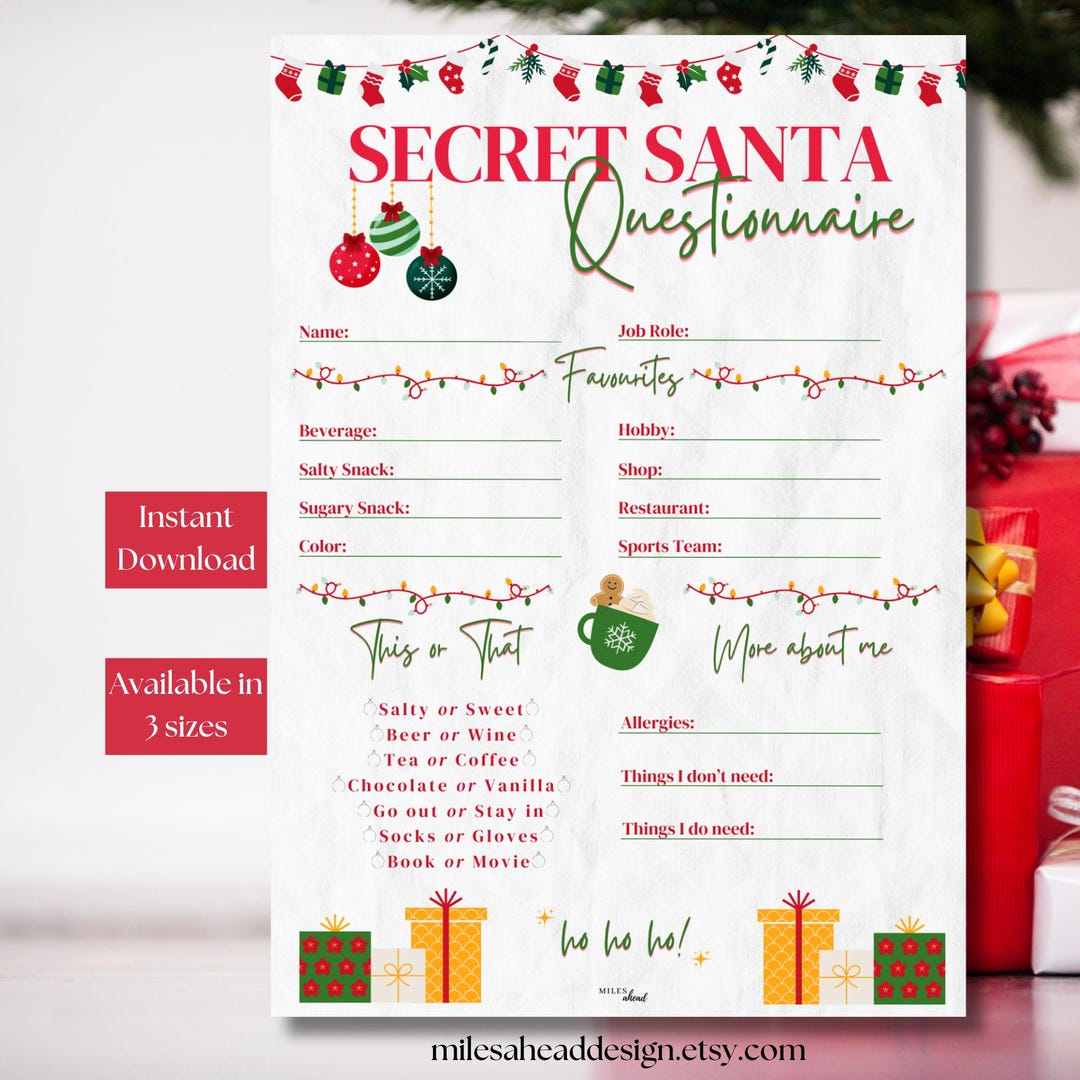 SECRET SANTA
Questionnaire
Name:
Job Role:
Favourites
Beverage:
Hobby:
Salty Snack:
Shop:
Sugary Snack:
Restaurant:
Color:
Sports Team:
This or That
More about me
Salty or Sweet
Beer or Wine
Tea or Coffee
Chocolate or Vanilla
Go out or Stay in
Socks or Gloves
Book or Movie
Allergies:
Things I don't need:
Things I do need:
ho ho ho!
MILES
ahead
Instant
Download
Available in
3 sizes
milesaheaddesign.etsy.com